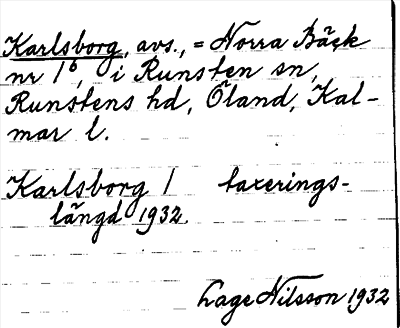 Karlsborg, avs., = Norra Bäck
nr 1⁶, i Runsten sn,
Runstens hd, Öland, Kal-
mar l.
Karlsborg / taxerings-
längd 1932.
Lage Nilsson 1932